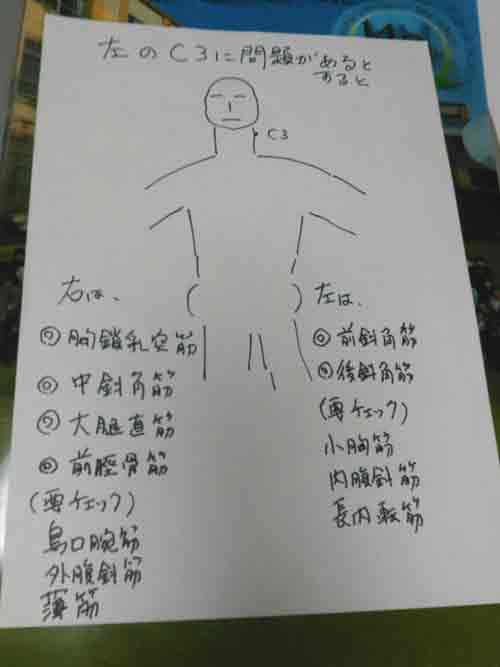 左のC3に問題があると
すると
C3
右は、
◎胸鎖乳突筋
◎中斜角筋
◎大腿直筋
◎前脛骨筋
(要チェック)
烏口腕筋
外腹斜筋
薄筋
左は、
◎前斜角筋
◎後斜角筋
(要チェック)
小胸筋
内腹斜筋
長内転筋